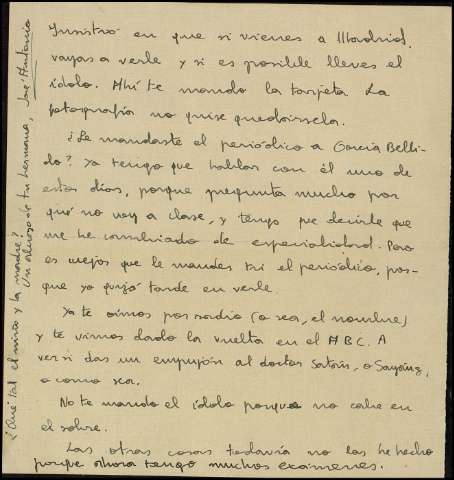 Insistió en que si vienes a Madrid,
vayas a verle y si es posible lleves el
ídolo. Ahí te mando la tarjeta. La
fotografía no quise quedársela.
¿Le mandaste el periódico a García Belli-
do? Ya tengo que hablar con él uno de
estos días, porque pregunta mucho por
qué no voy a clase, y tengo que decirle que
me he cambiado de especialidad. Pero
es mejor que le mandes tú el periódico, por-
que yo quizá tarde en verle.
Ya te oímos por radio (o sea, el nombre)
y te vimos dado la vuelta en el ABC. A
ver si das un empujón al doctor Satán, o
o como sea.
No te mando el ídolo porque no cabe en
el sobre.
Las otras cosas todavía no las he hecho
porque ahora tengo muchos exámenes.
¿Qué tal el niño y la madre?
Un abrazo de tu hermano, José Antonio